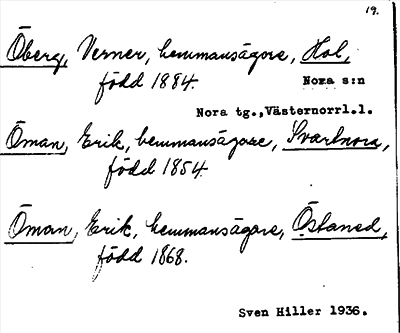 19.
Öberg, Verner, hemmansägare, Hol,
född 1884. Nora s:n
Nora tg., Västernorrl.l.
Öman, Erik, hemmansägare, Svartnora,
född 1854
Öman, Erik, hemmansägare, Östaned,
född 1868.
Sven Hiller 1936.